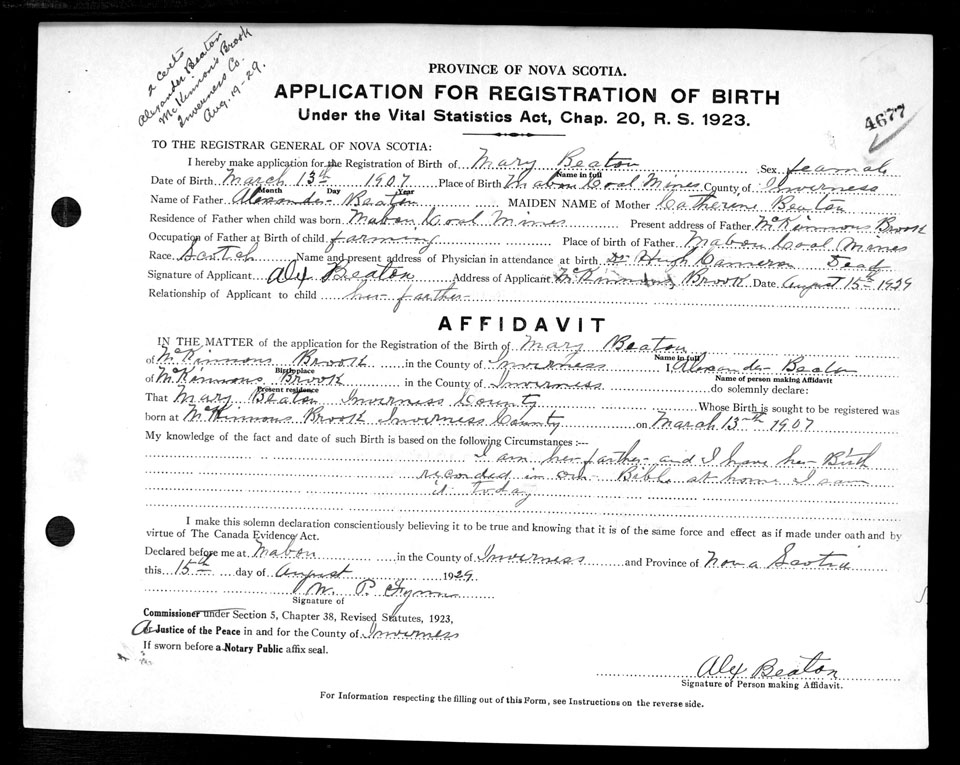 2 Certs
Alexander Beaton
McKinnon's Brook
Inverness Co.
Aug. 19-29.
4677
PROVINCE OF NOVA SCOTIA.
APPLICATION FOR REGISTRATION OF BIRTH
Under the Vital Statistics Act, Chap. 20, R. S. 1923.
TO THE REGISTRAR GENERAL OF NOVA SCOTIA:
I hereby make application for the Registration of Birth of Mary Beaton Sex feamale
Name in full
Date of Birth March 13th 1907 Place of Birth Mabou Coal Mines County of Inverness
Month Day Year
Name of Father Alexander Beaton MAIDEN NAME of Mother Catherene Beaton
Residence of Father when child was born Mabou Coal Mines Present address of Father McKinnons Brook
Occupation of Father at Birth of child farming Place of birth of Father Mabou Coal Mines
Race Scotch Name and present address of Physician in attendance at birth Dr Hugh Cameron Dead
Signature of Applicant Alex Beaton Address of Applicant McKinnons Brook Date August 15th 1929
Relationship of Applicant to child her farther
AFFIDAVIT
IN THE MATTER of the application for the Registration of the Birth of Mary Beaton
Name in full
of McKinnons Brook in the County of Inverness I, Alexander Beaton
Birthplace Name of person making Affidavit
of McKinnons Brook in the County of Inverness do solemnly declare:
Present residence
That Mary Beaton Inverness County Whose Birth is sought to be registered was
born at McKinnons Brook Inverness County on March 13th 1907
My knowledge of the fact and date of such Birth is based on the following Circumstances :—
I am her farther and I have her Birth
reconded in our Bible at home I saw
it today
I make this solemn declaration conscientiously believing it to be true and knowing that it is of the same force and effect as if made under oath and by
virtue of The Canada Evidence Act.
Declared before me at Mabou in the County of Inverness and Province of Nova Scotia
this 15th day of August 1929
W. P.
Signature of
Commissioner under Section 5, Chapter 38, Revised Statutes, 1923,
Or Justice of the Peace in and for the County of Inverness
If sworn before a Notary Public affix seal.
Alex Beaton
Signature of Person making Affidavit.
For Information respecting the filling out of this Form, see Instructions on the reverse side.